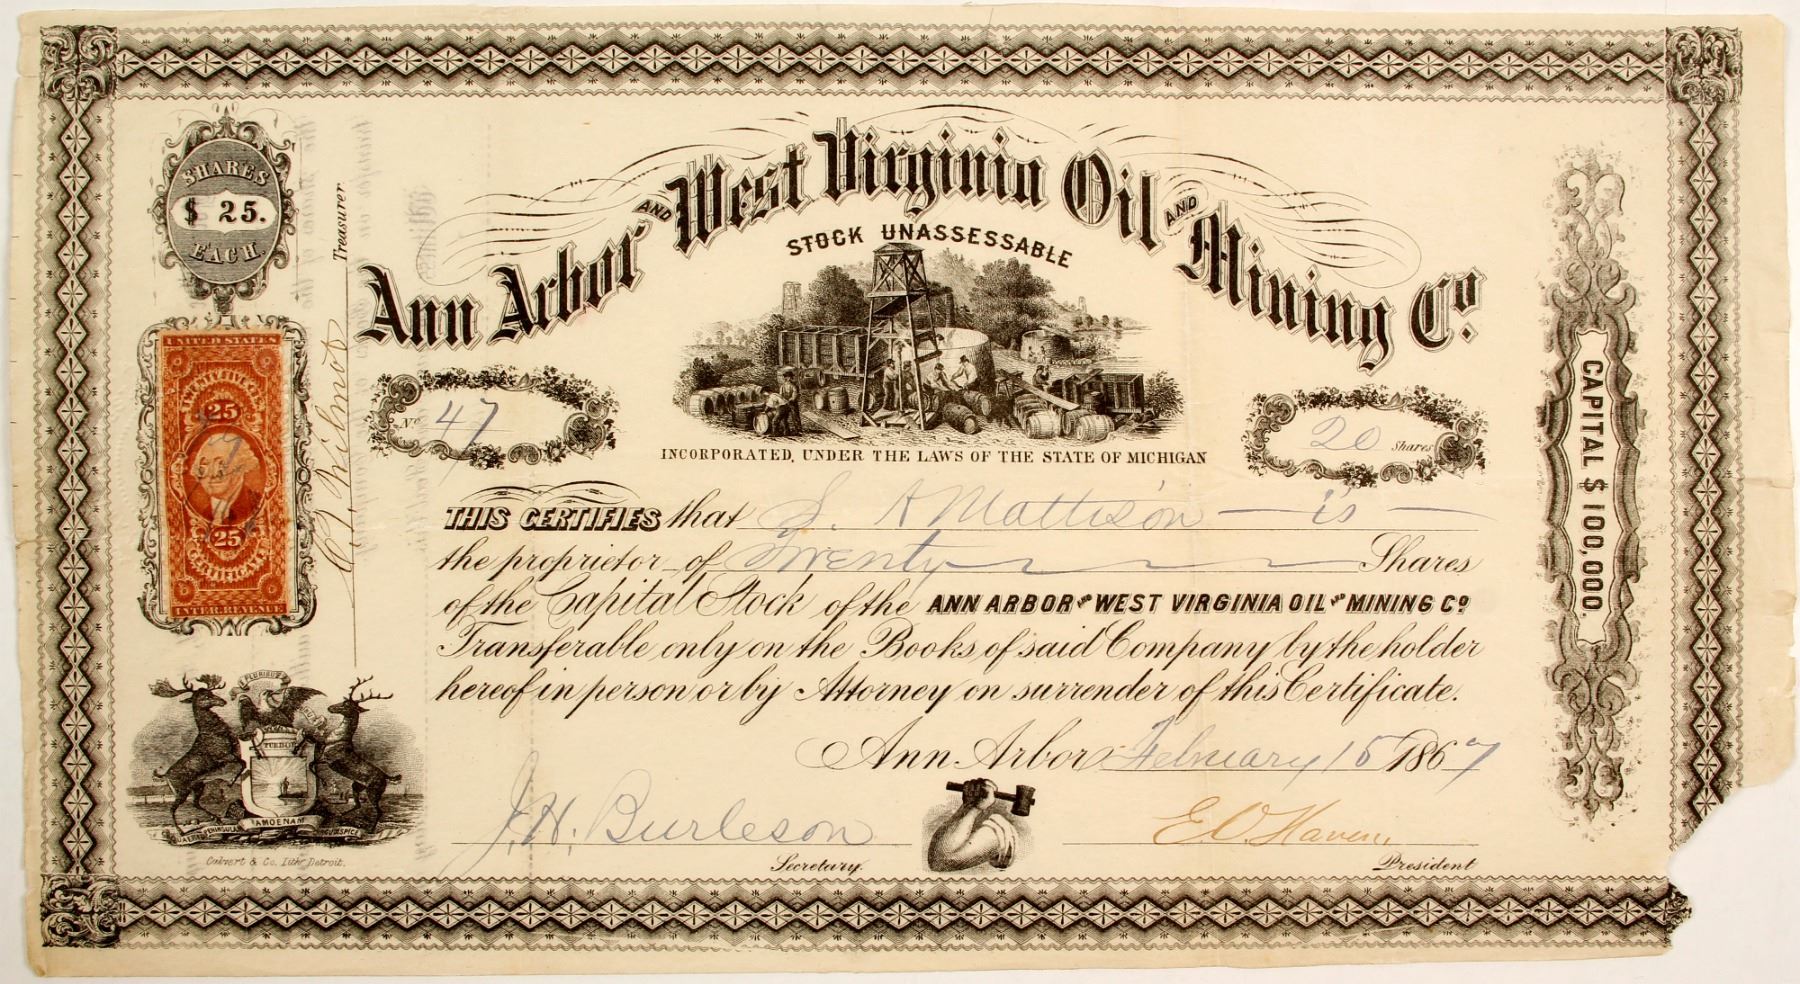 SHARES
$ 25.
EACH.
Treasurer
UNITED STATES
TWENTY FIVE CTS.
25
25
CERTIFICATE
INTER. REVENUE
E PLURIBUS
TUEBOR
SI QUAERIS PENINSULAM
AMOENAM
CIRCUMSPICE
Calvert & Co. Lith. Detroit.
Ann Arbor AND West Virginia Oil AND Mining Co.
STOCK UNASSESSABLE
No. 47
20 Shares
INCORPORATED, UNDER THE LAWS OF THE STATE OF MICHIGAN
THIS CERTIFIES that S. A Mattison is
the proprietor of Twenty Shares
of the Capital Stock of the ANN ARBOR AND WEST VIRGINIA OIL AND MINING CO.
Transferable only on the Books of said Company by the holder
hereof in person or by Attorney on surrender of this Certificate.
Ann Arbor February 15 1867
J. H. Burleson
Secretary.
E. O. Haven,
President
CAPITAL $ 100,000.